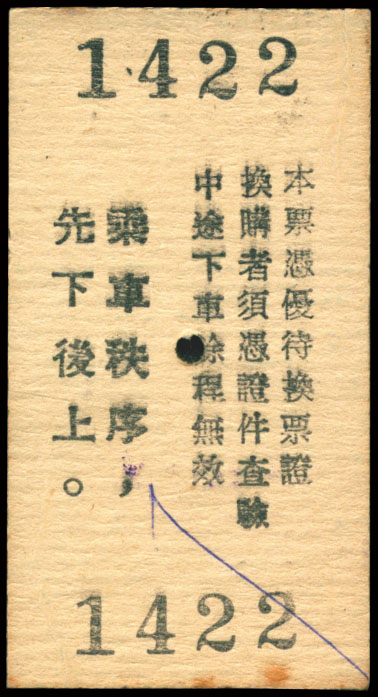 1422
本票憑優待換票證
換購者須憑證件查驗
中途下車餘程無效
乘車秩序，
先下後上。
1422